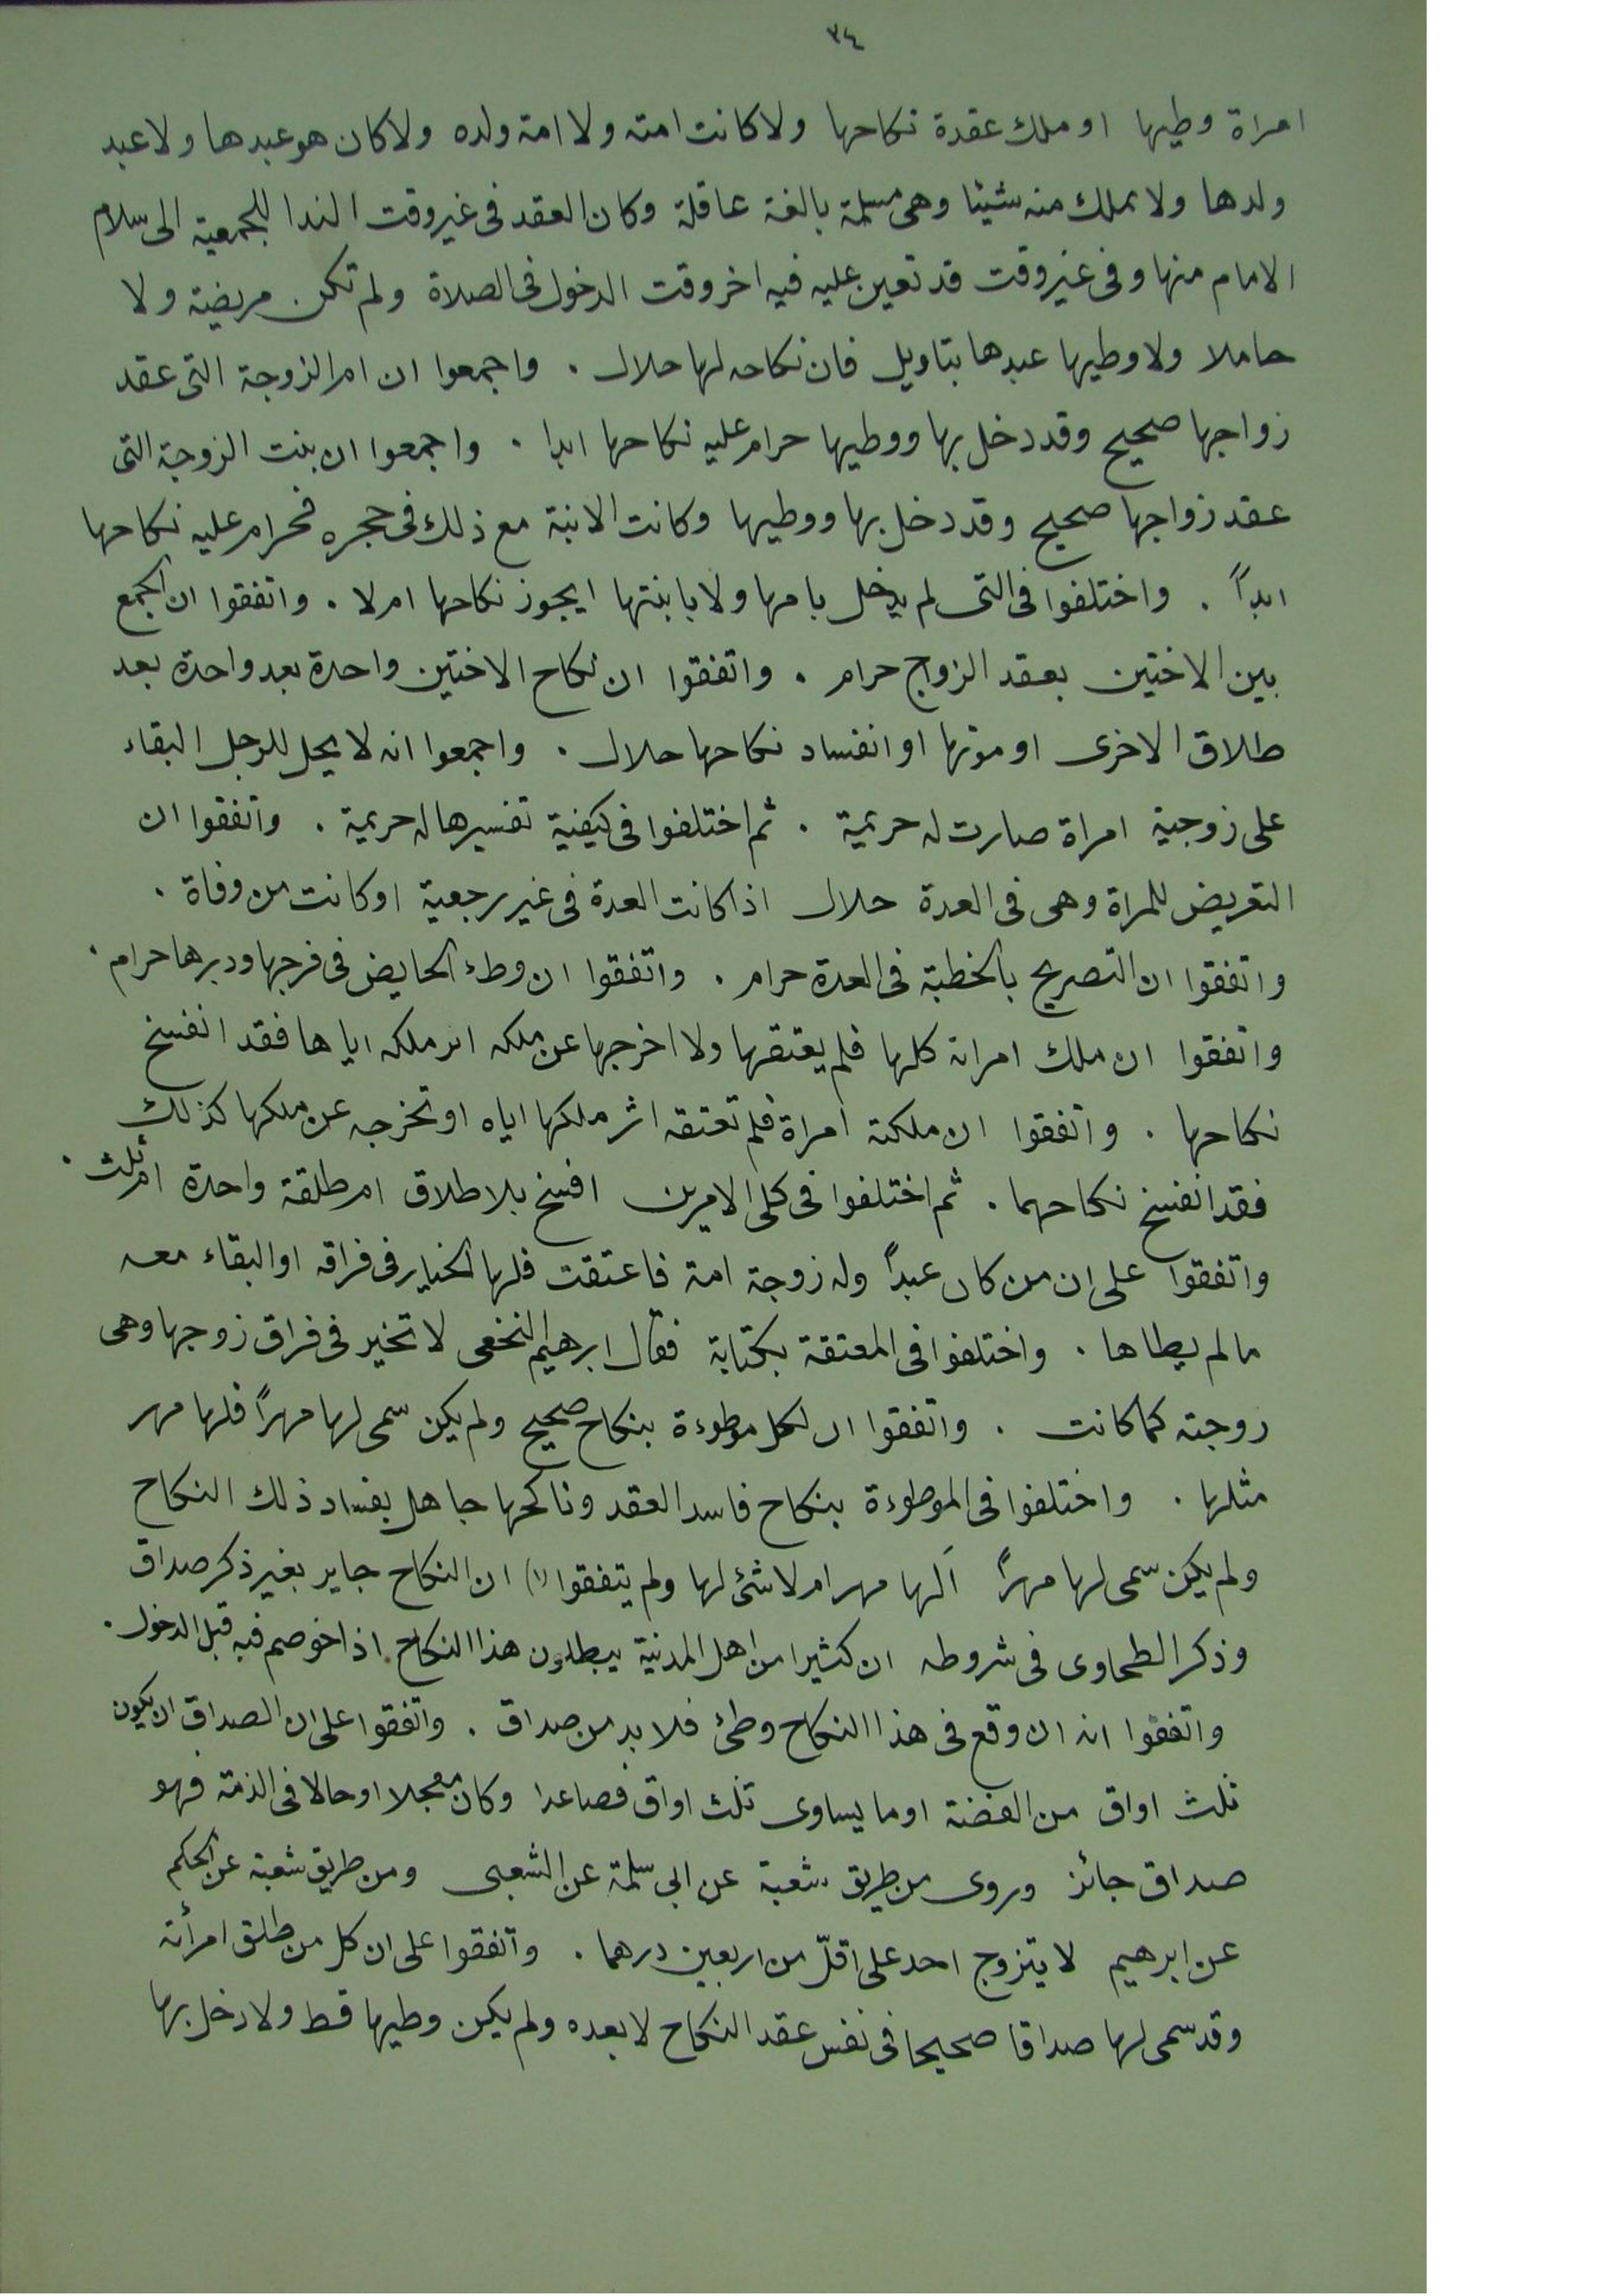 ٣٤
امراة وطيها او ملك عقدة نكاحها ولا كانت امته ولا امة ولده ولا كان هو عبدها ولا عبد
ولدها ولا يملك منه شيئا وهى مسلمة بالغة عاقلة وكان العقد فى غير وقت الندا للجمعية الى سلام
الامام منها وفى غير وقت قد تعين عليه فيه اخر وقت الدخول فى الصلاة ولم تكن مريضة ولا
حاملا ولا وطيها عبدها بتاويل فان نكاحه لها حلال . واجمعوا ان ام الزوجة التى عقد
زواجها صحيح وقد دخل بها ووطيها حرام عليه نكاحها ابدا . واجمعوا ان بنت الزوجة التى
عقد زواجها صحيح وقد دخل بها ووطيها وكانت الابنة مع ذلك فى حجره فحرام عليه نكاحها
ابداً . واختلفوا فى التى لم يدخل بامها ولا بابنتها ايجوز نكاحها ام لا . واتفقوا ان الجمع
بين الاختين بعقد الزواج حرام . واتفقوا ان نكاح الاختين واحدة بعد واحدة بعد
طلاق الاخرى او موتها او انفساد نكاحها حلال . واجمعوا انه لا يحل للرجل البقاء
على زوجية امراة صارت له حريمة . ثم اختلفوا فى كيفية تفسيرها له حريمة . واتفقوا ان
التعريض للمراة وهى فى العدة حلال اذا كانت العدة فى غير رجعية او كانت من وفاة .
واتفقوا ان التصريح بالخطبة فى العدة حرام . واتفقوا ان وطء الحايض فى فرجها ودبرها حرام .
واتفقوا ان ملك امراته كلها فلم يعتقها ولا اخرجها عن ملكه اثر ملكه اياها فقد انفسخ
نكاحها . واتفقوا ان ملكته امراة فلم تعتقه اثر ملكها اياه او تخرجه عن ملكها كذلك
فقد انفسخ نكاحهما . ثم اختلفوا فى كلى الامرين افسخ بلا طلاق ام طلقة واحدة ام ثلث .
واتفقوا على ان من كان عبداً وله زوجة امة فاعتقت فلها الخيار فى فراقه او البقاء معه
ما لم يطاها . واختلفوا فى المعتقة بكتابة فقال ابرهيم النخعى لا تخير فى فراق زوجها وهى
زوجته كما كانت . واتفقوا ان لكل موطوءة بنكاح صحيح ولم يكن سمى لها مهراً فلها مهر
مثلها . واختلفوا فى الموطوءة بنكاح فاسد العقد وناكحها جاهل بفساد ذلك النكاح
ولم يكن سمى لها مهراً اَلها مهر ام لا شئ لها ولم يتفقوا (١) ان النكاح جاير بغير ذكر صداق
وذكر الطحاوى فى شروطه ان كثيرا من اهل المدنية يبطلون هذا النكاح اذا خوصم فيه قبل الدخول .
واتفقوا انه ان وقع فى هذا النكاح وطئ فلا بد من صداق . واتفقوا على ان الصداق ان يكون
ثلث اواق من الفضة او ما يساوى ثلث اواق فصاعدا وكان معجلا او حالا فى الذمة فهو
صداق جائز وروى من طريق شعبة عن ابى سلمة عن الشعبى ومن طريق شعبة عن الحكم
عن ابرهيم لا يتزوج احد على اقلّ من اربعين درهما . واتفقوا على ان كل من طلق امرأته
وقد سمى لها صداقا صحيحا فى نفس عقد النكاح لا بعده ولم يكن وطيها قط ولا دخل بها